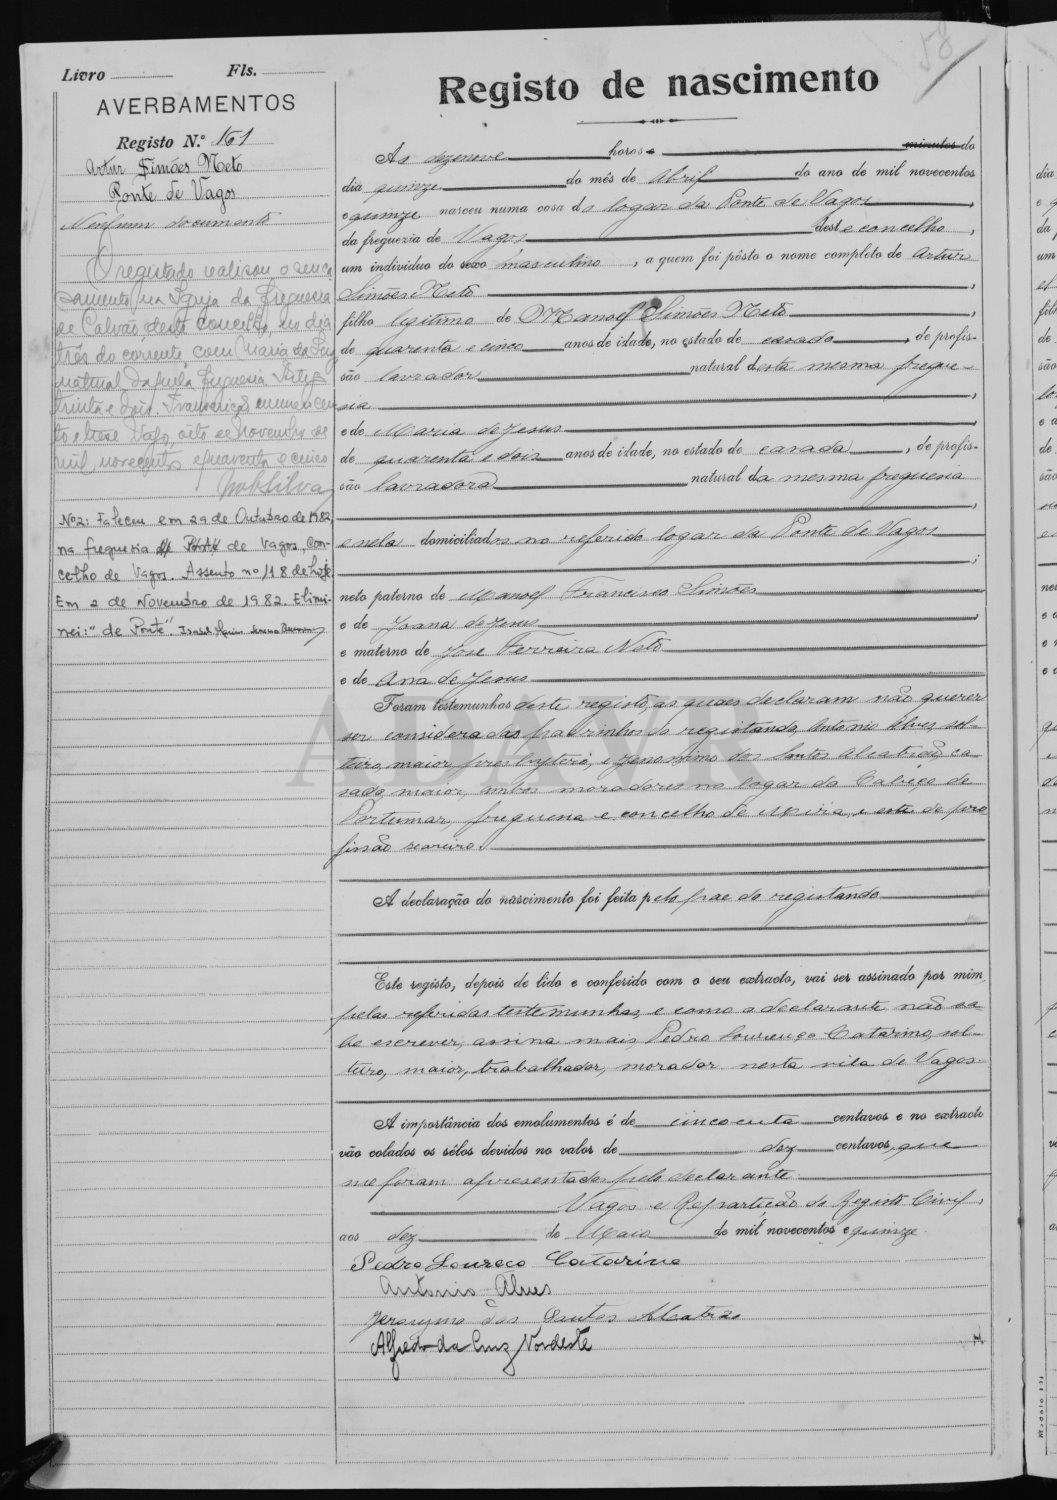 58
Livro Fls.
AVERBAMENTOS
Registo N.º 161
Artur Simões Neto
Ponte de Vagos
Nenhum documento
O registado realisou o seu ca
samento na Igreja da freguesia
de Calvão, deste concelho, no dia
três do corrente, com Maria da Luz
natural daquela freguesia
trinta e dois.
to e treze Vagos, oito de Novembro de
mil, novecentos e quarenta e cinco
Silva
Nº2: Faleceu em 29 de Outubro de 1982,
na freguesia de Ponte de Vagos, con-
celho de Vagos. Assento nº 118 de hoje.
Em 2 de Novembro de 1982. Elimi-
nei: "de Ponte". Isabel Maria
Registo de nascimento
Ás dezenove horas e minutos do
dia quinze do mês de Abril do ano de mil novecentos
e quinze nasceu numa casa do logar da Ponte de Vagos,
da freguezia de Vagos deste concelho,
um individuo do sexo masculino, a quem foi pôsto o nome completo de Artur
Simões Neto,
filho legitimo de Manoel Simões Neto,
de quarenta e cinco anos de idade, no estado de casado, de profis-
são lavrador natural desta mesma fregue-
sia,
e de Maria de Jesus,
de quarenta e dois anos de idade, no estado de casada, de profis-
são lavradora natural da mesma freguesia
,
e nela domiciliados no referido logar da Ponte de Vagos
;
neto paterno de Manoel Francisco Simões
e de Joana de Jesus,
e materno de José Ferreira Neto
e de Ana de Jesus
Foram testemunhas deste registo, as quaes declaram não querer
ser consideradas padrinhos do registando, Antonio Alves, sol-
teiro, maior, presbytero, e Jeronymo dos Santos Alcatrão, ca-
sado, maior, ambos moradores no logar da Cabeça de
Portumar, freguesia e concelho de Mira, e este de pro
fissão seareiro.
A declaração do nascimento foi feita pelo pae do registando
Este registo, depois de lido e conferido com o seu extracto, vai ser assinado por mim,
pelas referidas testemunhas, e como o declarante não sa
be escrever, assina mais, Pedro Lourenço Catarino, sol-
teiro, maior, trabalhador, morador nesta vila de Vagos
A importância dos emolumentos é de cincoenta centavos e no extracto
vão colados os sêlos devidos no valor de dez centavos, que
me foram apresentados pelo declarante.
Vagos e Repartição do Registo Civil,
aos dez de Maio de mil novecentos e quinze.
Pedro Loureco Catarino
Antonio Alves
Jeronymo dos Santos Alcatrão
Alfredo da Cruz Nordeste
ADAVR